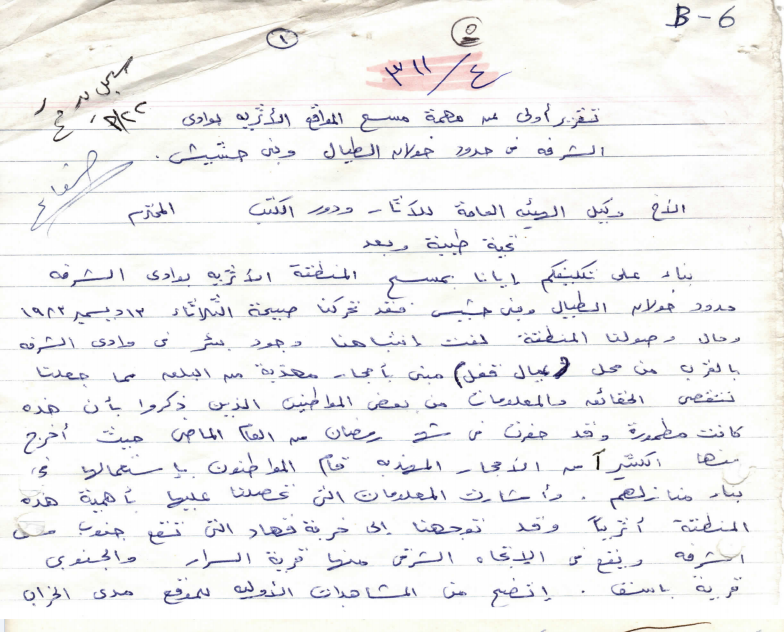 B-6
٥
١
٣١١/٤
تقرير أولي عن مهمة مسح المواقع الأثريه بوادي
الشرفه في حدود خولان الطيال وبني حشيش.
الأخ وكيل الهيئه العامة للآثار ودور الكتب المحترم
تحية طيبة وبعد
بناء على تكليفكم إيانا بمسح المنطقة الأثريه بوادي الشرفه
حدود خولان الطيال وبني حشيش فقد تحركنا صبيحة الثلاثاء ١٣ ديسمبر ١٩٨٣
وحال وصولنا المنطقة لفت إنتباهنا وجود بئر في وادي الشرفه
بالقرب من محل (عيال قفل) مبني بأحجار مهذبة من البلق مما جعلنا
نتقصى الحقائق والمعلومات من بعض المواطنين الذين ذكروا بأن هذه
كانت مطمورة وقد حفرت في شهر رمضان من العام الماضي حيث أخرج
منها الكثير من الأحجار المهذبه قام المواطنون بإستعمالها في
بناء منازلهم . وأشارت المعلومات التي تحصلنا عليها بأهمية هذه
المنطقة أثرياً وقد توجهنا إلى خربة فهاد التي تقع جنوب
الشرفه ويقع في الإتجاه الشرقي منها قرية السرار والجنوبي
قرية . إتضح من المشاهدات الأوليه للموقع مدى الخراب